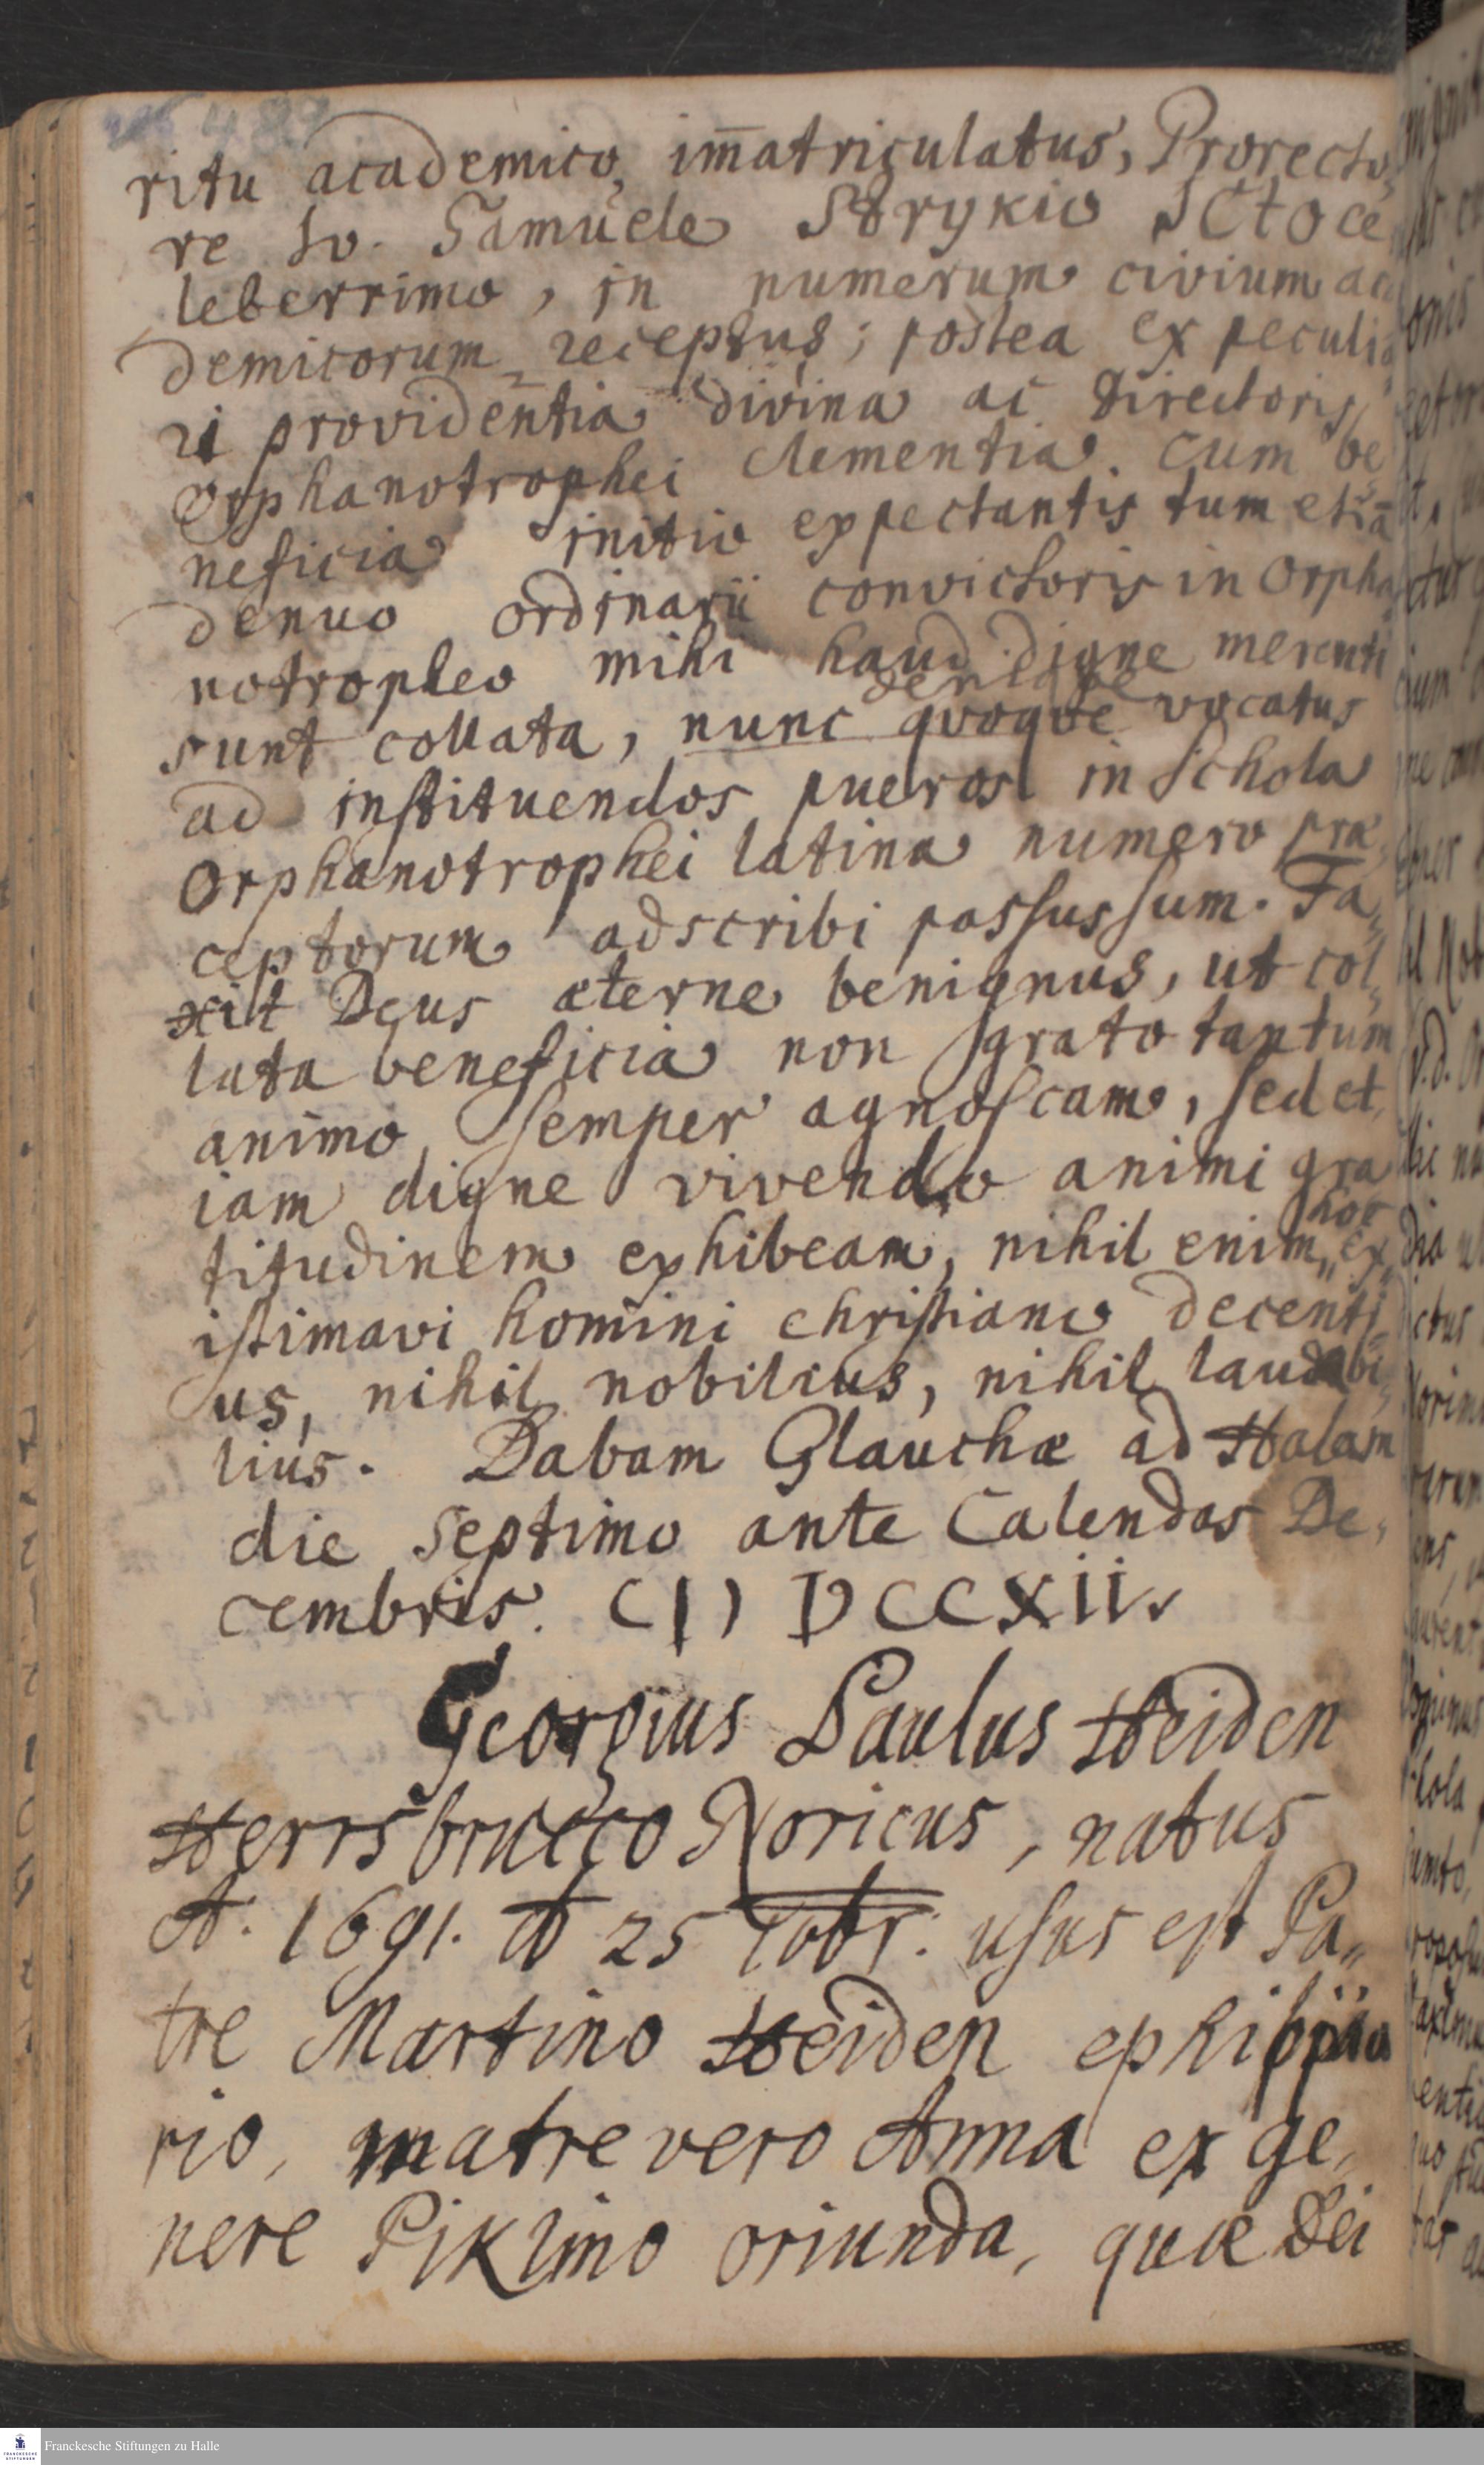 489
ritu academico, im̅atriculatus, Prorecto,
re Dn. Samuele Strykio JCto ce
leberrimo, in numerum civium aca
demicorum receptus; postea ex peculia
ri providentia divina ac Directoris
orphanotrophei clementia. cum be
neficia initio expectantis tum etiā
denuo ordinarii convictoris in Orpha
notropheo mihi haud digne merenti
sunt collata, nunc quoque vocatus
denique
ad instituendos pueros in Schola
Orphanotrophei latina numero præ,
ceptorum adscribi passus sum. Fa,
xit Deus æterne benignus, ut col,
lata beneficia non grato tantum
animo semper agnoscam, sed et,
iam digne vivendo animi gra
titudinem exhibeam, nihil enim hoc ex,,
istimavi homini christiano decenti,
us, nihil nobilius, nihil laudabi,
lius. Dabam Glauchæ ad Halam
die Septimo ante Calendas De,
cembris. CIↃ DCCXII.
Georgius Paulus Heiden
Herrsbrucco Noricus, natus
A. 1691. d 25 Xbr: usus est Pa,,
tre Martino Heiden ephippia
rio, matre vero Anna ex ge,
nere Piklino oriunda, quæ Dei
Franckesche Stiftungen zu Halle